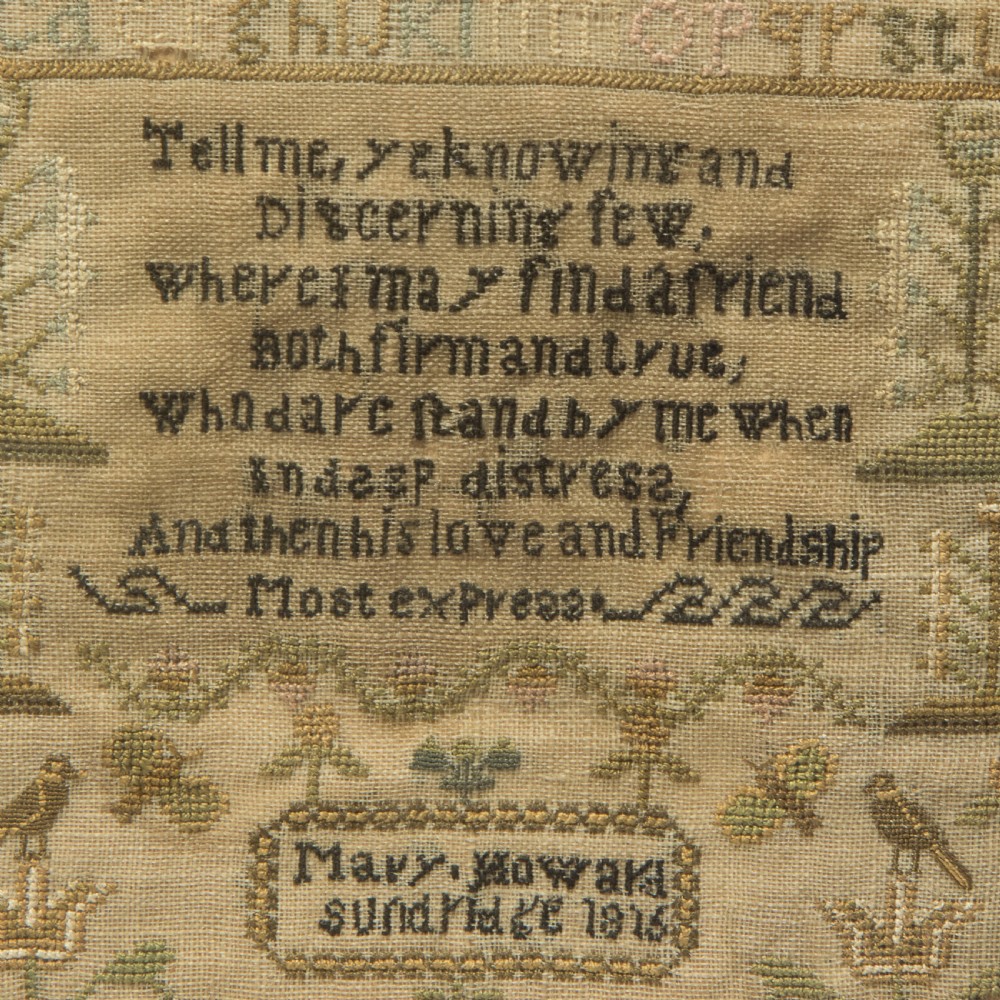 ghijkl opqrst
Tell me, ye knowing and
Discerning few,
where I may find a friend
Both firm and true;
Who dare stand by me when
In deep distress,
And then his love and Friendship
Most express.
Mary. Howard
sundridge